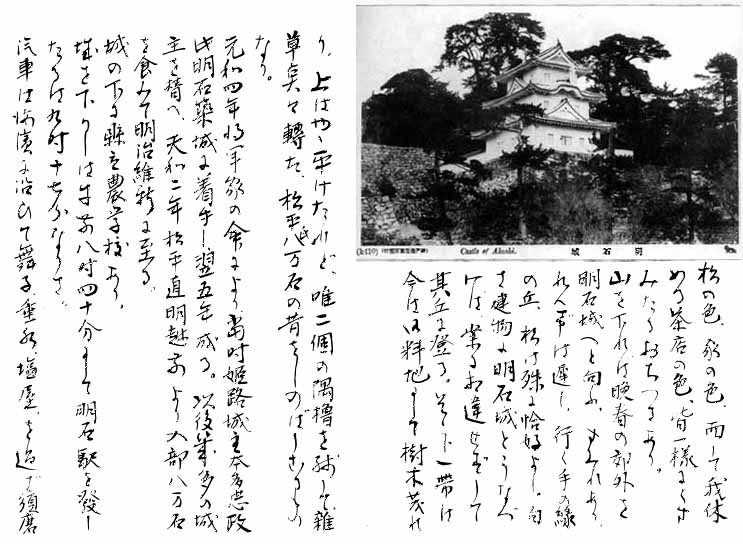 明石城
Castle of Akashi.
(k110)
松の色、家の色、而して我休
める茶店の色、皆一様にくす
みたるおちつきあり。
山を下れば晩春の郊外を
明石城へと向ふ。すみれあり、
れんげは遅し。行く手の緑
の丘、松は殊に恰好よし。白
き建物は明石城とうなづ
けば、業に違せずして
其丘に登る。一帯は
今は料地にて樹木茂れ
り、上はやゝ平けたれど、唯二個の隅櫓を残して、雑
草轉た、松平八万石の昔をしのばしむるもの
なり。
元和四年将軍家の命により当時姫路城主本多忠政
此明石築城に着手し翌五年成る。以後幾多の城
主を替へ天和二年松平直明越前より入部八万石
を食みて明治維新に至る。
城の下に縣立農学校あり。
城を下りしは午前八時四十分にして明石駅を發し
たるは九時十七分なりき。
汽車は海濱に沿ひて舞子、垂水、塩屋を過ぎ須磨